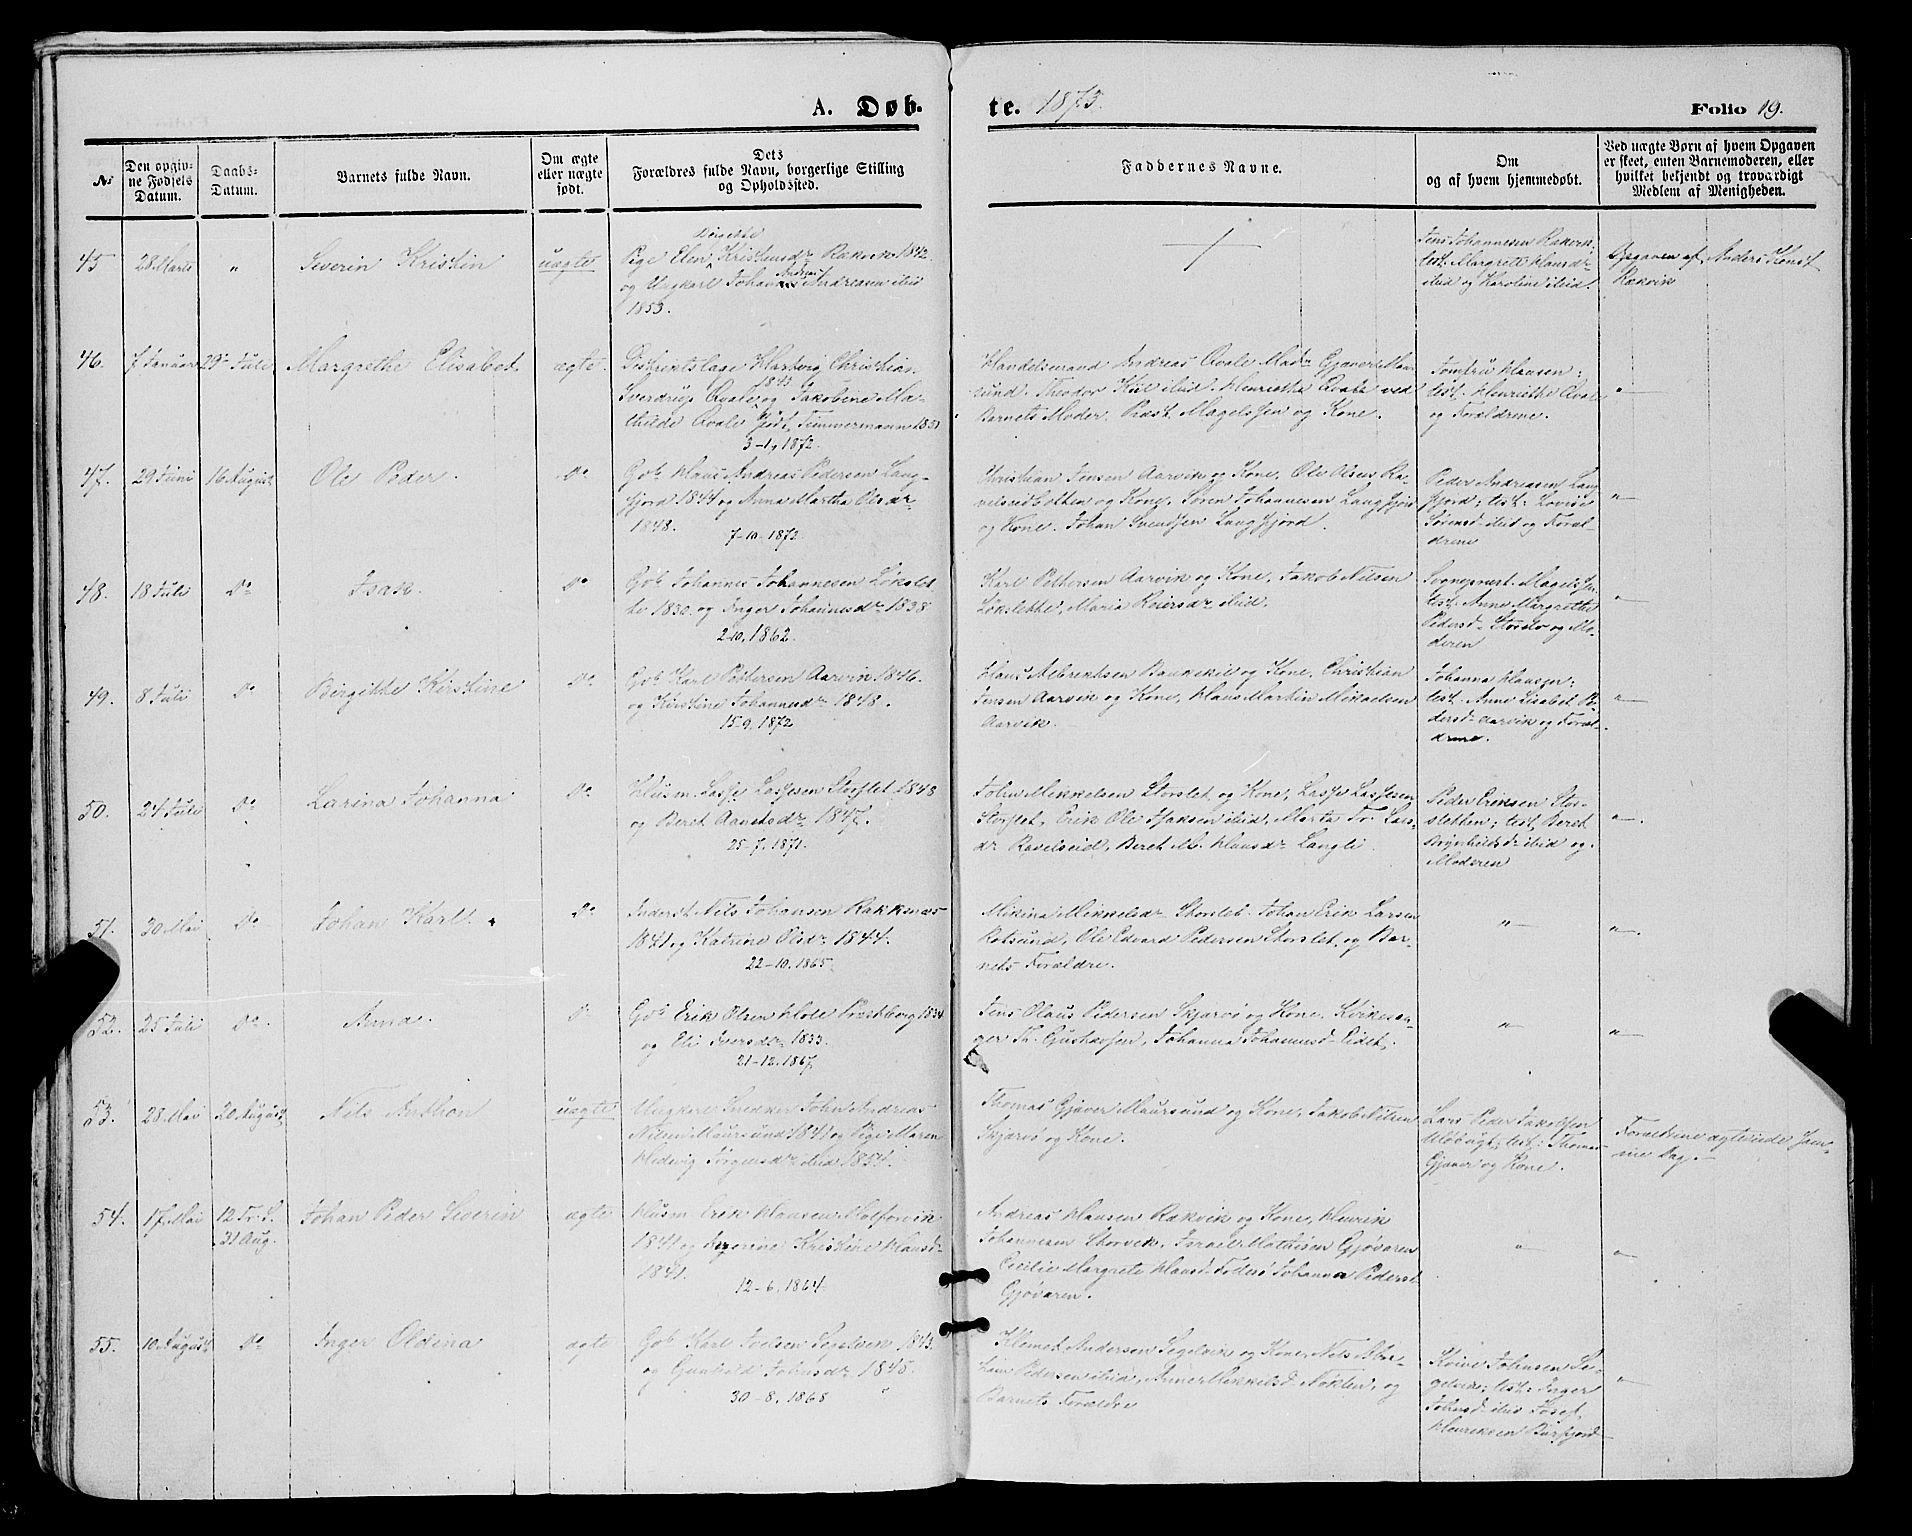 A. Døb- te. 1873. Folio 19.
No
Den opgiv-
ne Fødsels
Datum.
Daabs-
Datum.
Barnets fulde Navn.
Om ægte
eller uægte
født.
Dets
Forældres fulde Navn, borgerlige Stilling
og Opholdssted.
Faddernes Navne.
Om
og af hvem hjemmedøbt.
Ved uægte Børn af hvem Opgaven
er skeet, enten Barnemoderen, eller
hvilket bekjendt og troværdigt
Medlem af Menigheden.
45 28 Marts " Severin Kristin uægte
Birgitte
Pige Elen Kristensdr Rakvik 1842
og Ungkarl Johannes Andreas Andreasen ibid
1853.
Jens Johannesen Rakvik;
test. Margrete Hansdr
ibid og Karoline ibid.
Opgaven af Anders Konst
Rakvik
46. 7 Januar 29 Juli Margrethe Elisabet. ægte.
Distriktslæge Hartvig Christian
Sverdrup Qvale 1843 og Jakobine Ma-
thilde Qvale født Timmermann 1851
3-1, 1872.
Handelsmand Andreas Qvale Madm Gjæver Maur-
sund. Theodor Kiil ibid. Henriette Qvale ved
Barnets Moder. Præst Magelssen og Kone.
Jomfru Hansen;
test. Henriette Qvale
og Forældrene.
"
47. 29 Juni 16 August Ole Peder. Do
Gbr Hans Andreas Pedersen Lang-
fjord 1844 og Anna Martha Olsdr
1848.
7-10-1872.
Christian Jensen Aarvik og Kone, Ole Olsen Ra-
velseidbotten og Kone, Søren Johannesen Langfjord
og Kone. Johan Svendsen Langfjord.
Peder Andreasen Lang
fjord; test: Lovise
Sørensd ibid og Foræl-
drene
"
48. 18 Juli Do Isak. Do
Gbr Johannes Johannesen Løkslet-
te 1830 og Inger Johannesdr 1838
2-10, 1862.
Karl Pettersen Aarvik og Kone, Jakob Nilsen
Løkslette, Maria Reiersdr ibid.
Sognepræst Magelssen
test. Anne Margrethe
Pedersd. Storslet og Mo-
deren
"
49. 8 Juli Do Birgitte Kirstine Do
Gbr Karl Pettersen Aarvik 1846.
og Kirstine Johannesdr 1848.
15-9, 1872
Hans Albrektsen Bankekiil og Kone, Christian
Jensen Aarvik og Kone, Hans Martin Mikaelsen
Aarvik.
Johanna Hansen;
test. Anne Lisabet Pe-
dersd Aarvik og Foræl-
drene.
"
50. 24 Juli Do Larina Johanna Do
Husm. Lasse Lassesen Storslet 1848
og Beret Aanetsdr 1847.
25-7, 1871.
John Mikkelsen Storslet og Kone, Lasse Lassesen
Storslet, Erik Ole Isaksen ibid, Marta Fr. Lars-
dr Ravelseid, Beret M. Hansdr Langli
Peder Eriksen Stor-
sletten; test. Beret
Brynhildsd ibid og
Moderen
"
51. 30 Mai Do Johan Karl. Do
Inderst Nils Johansen Rakkenæs
1841 og Katrine Olsdr 1844.
22-10, 1865.
Mikina Mikkelsdr Storslet. Johan Erik Larsen
Rotsund, Ole Edvard Pedersen Storslet, og Bar-
nets Forældre.
" "
52. 25 Juli Do. Anna. Do
Gbr Erik Olsen Hole Præstberg 1834
og Eli Iversdr 1833.
21-12, 1867.
Jens Olaus Pedersen Skjærvø og Kone. Kirkesan-
ger Th. Gustavsen, Johanna Johannesd Eidet.
" "
53. 28 Mai 20 August Nils Anthon uægte
Ungkarl Snedker John Andreas
Nilsen Maursund 1841 og Pige Maren
Hedvig Jørgensdr ibid 1851.
Thomas Gjæver Maursund og Kone, Jakob Nilsen
Skjærvø og Kone.
Lars Peder Jakobsen
Uløbugt; test: Thomas
Gjæver og Kone.
Forældrene ægteviede sam-
me Dag.
54. 17 Mai 12 Tr. S.
31 Aug. Johan Peder Severin ægte
Husm Erik Hansen Molforvik
1841 og Kristine Hansd
1841.
12-6, 1864.
Andreas Hansen Rakvik og Kone, Henrik
Johannesen Storvik, Israel Mathisen Gjøvaren
Cecilie Margrete Hansd Follesø Johanna Pedersd
Gjøvaren.
" "
55. 10 August Do Inger Oldina ægte
Gbr Karl Joelsen Segelvik 1843.
og Gunhild Johnsdr 1845.
30-8, 1868
Klemet Andersen Segelvik og Kone, Nils Abra-
ham Pedersen ibid, Anne Mikkelsd Nøklen, og
Barnets Forældre
Johnsen Se-
gelvik; test: Inger
Johnsd ibid Josef
Henriksen Burfjord
"